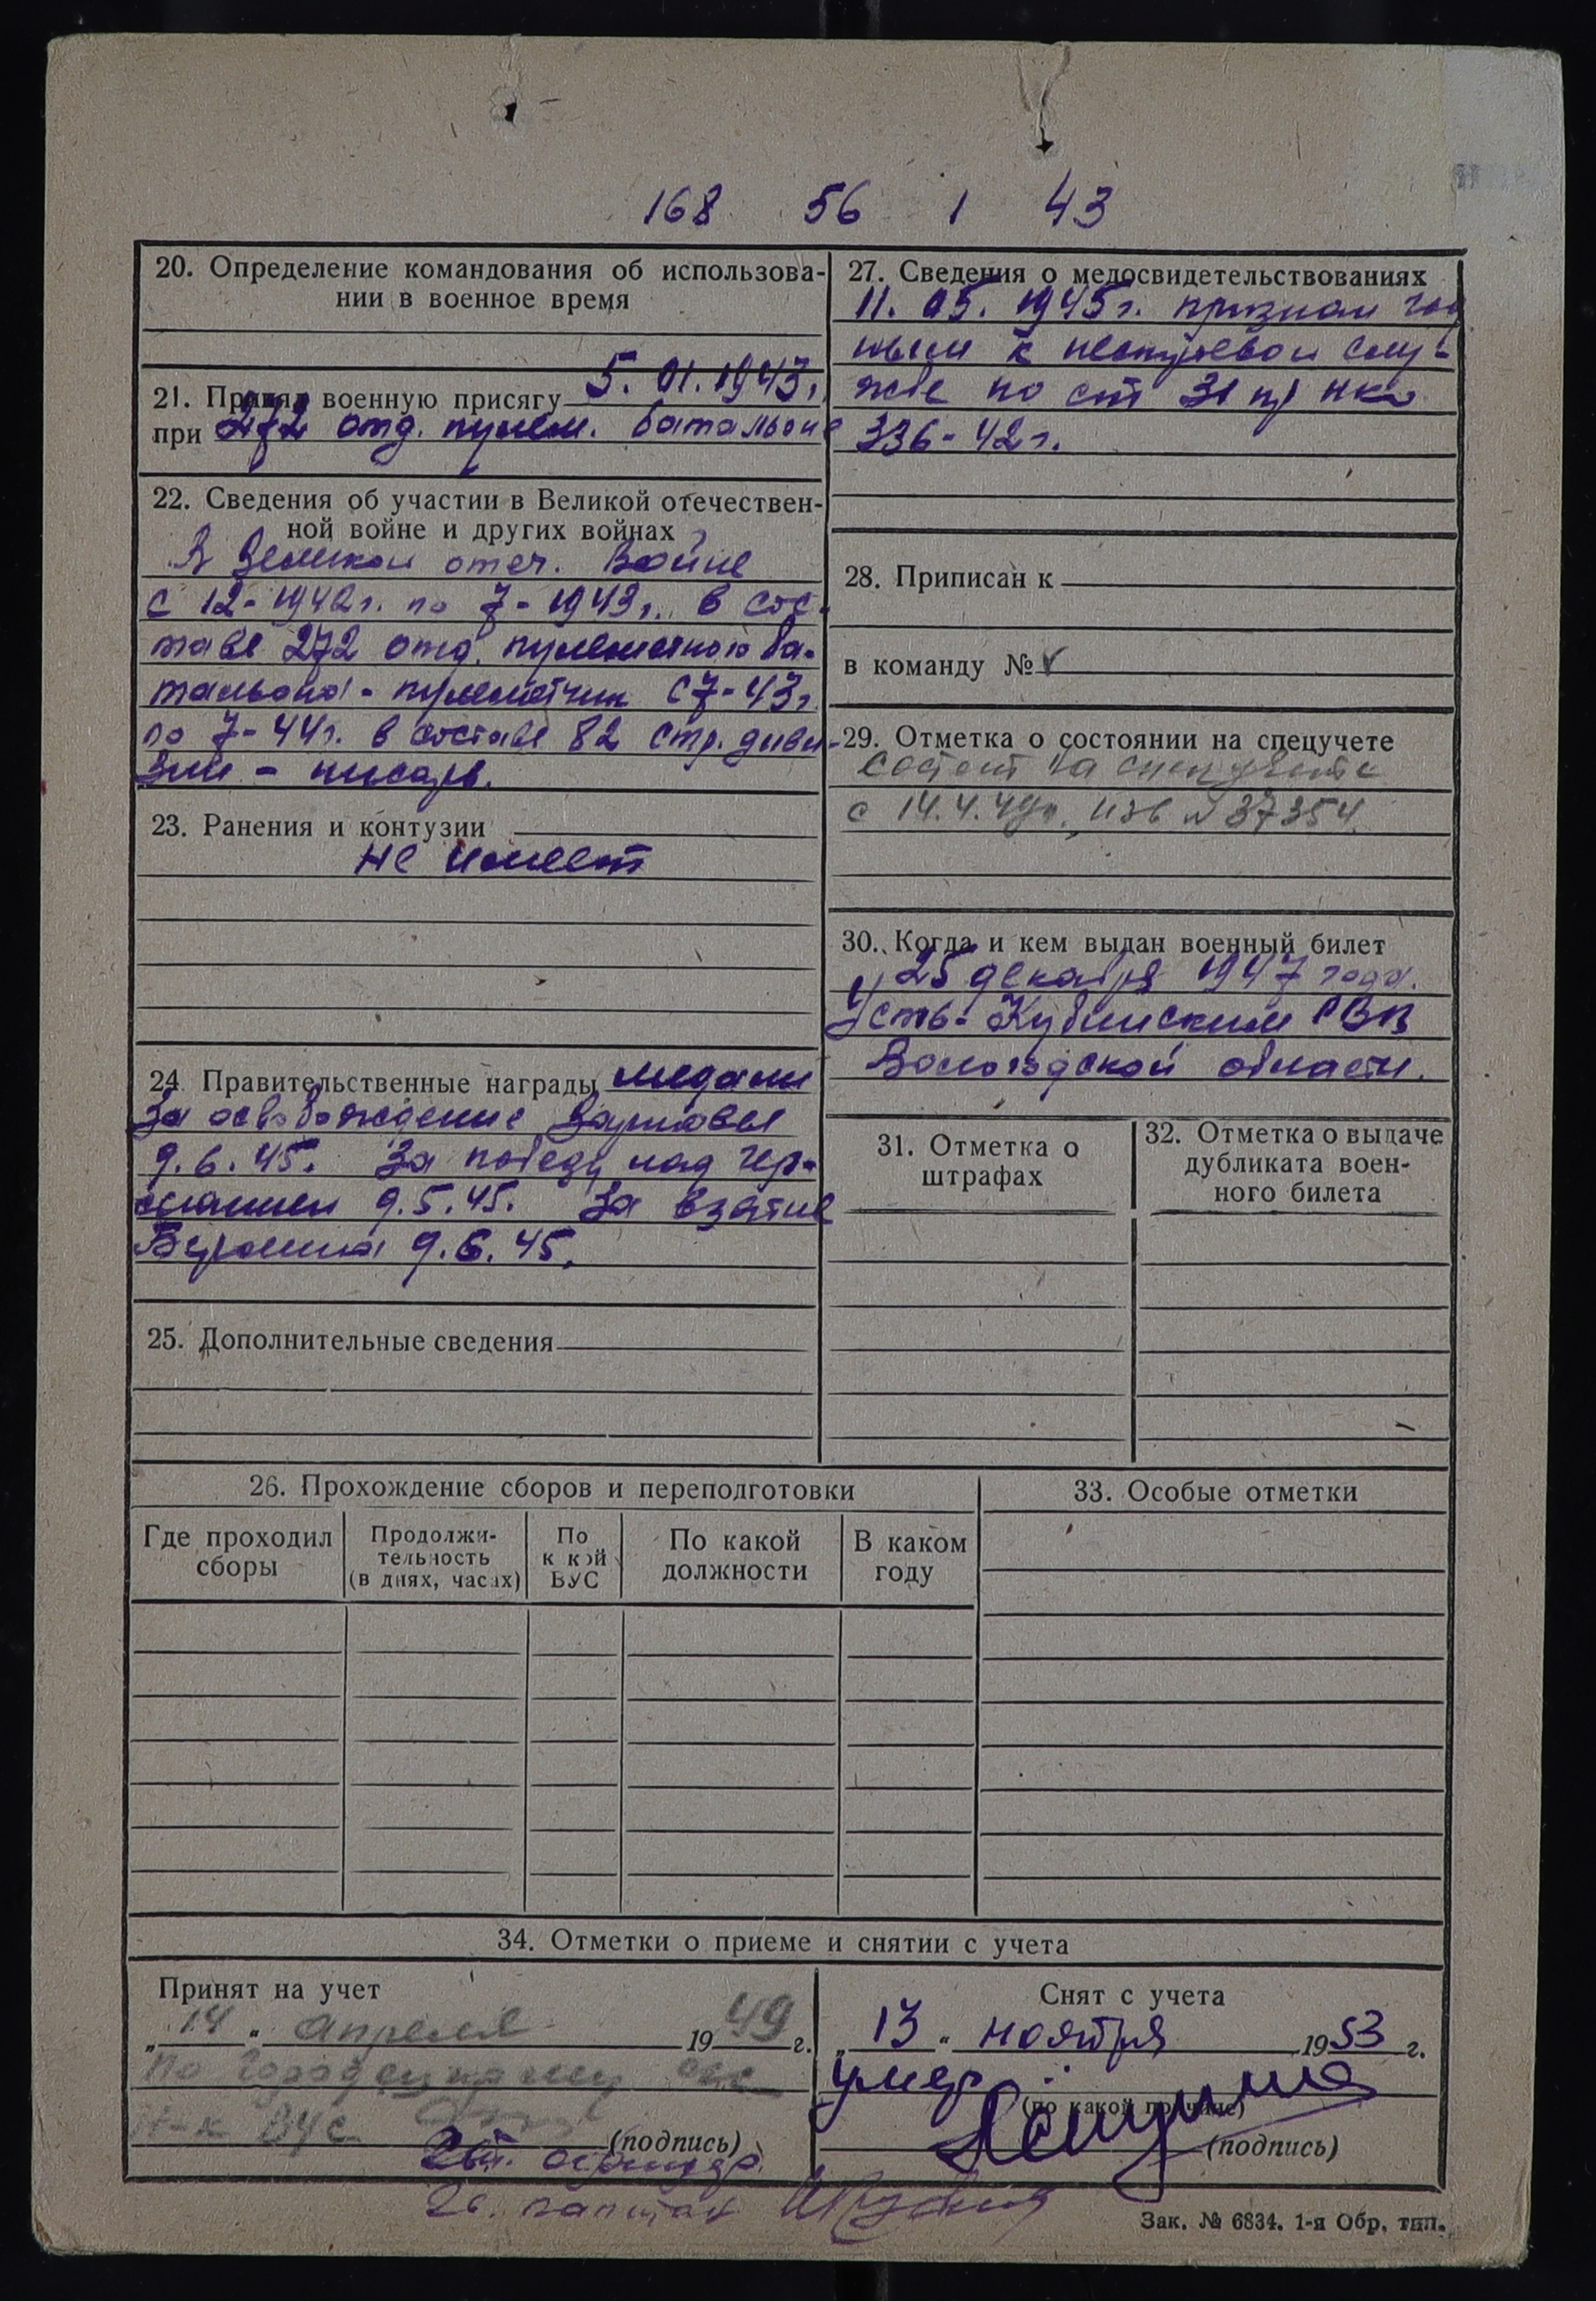 168 56 1 43
20. Определение командования об использова-
нии в военное время
21. Принял военную присягу 5.01.1943г.
при 272 отд. пулем. батальоне
22. Сведения об участии в Великой отечествен-
ной войне и других войнах
В Великой отеч. Войне
с 12-1942г. по 7-1943г. в сос-
таве 272 отд. пулеметного ба-
тальона - пулеметчик с 7-43г.
по 7-44г. в составе 82 стр. диви-
зии - писарь.
23. Ранения и контузии
не имеет
24. Правительственные награды медали
За освобождение Варшавы
9.6.45. За победу над Гер-
манией 9.5.45. За взятие
Берлина 9.6.45.
25. Дополнительные сведения
27. Сведения о медосвидетельствованиях
11.05.1945г. признан год
ным к нестроевой слу-
жбе по ст 31 пр НКО
336-42г.
28. Приписан к
в команду №
29. Отметка о состоянии на спецучете
Состоит на спецучете
с 14.4.49г., изв №37354.
30. Когда и кем выдан военный билет
25 декабря 1947 года.
Усть-Кубинским РВК
Вологодской области.
31. Отметка о
штрафах
32. Отметка о выдаче
дубликата воен-
ного билета
26. Прохождение сборов и переподготовки
Где проходил
сборы
Продолжи-
тельность
(в днях, часах)
По
к кой
ВУС
По какой
должности
В каком
году
33. Особые отметки
34. Отметки о приеме и снятии с учета
Принят на учет
„14“ апреля 1949 г.
по
н-к ВУС
(подпись)
Снят с учета
„13“ ноября 1953 г.
умер
(по какой причине)
(подпись)
капитан
Зак. № 6834. 1-я Обр. тип.